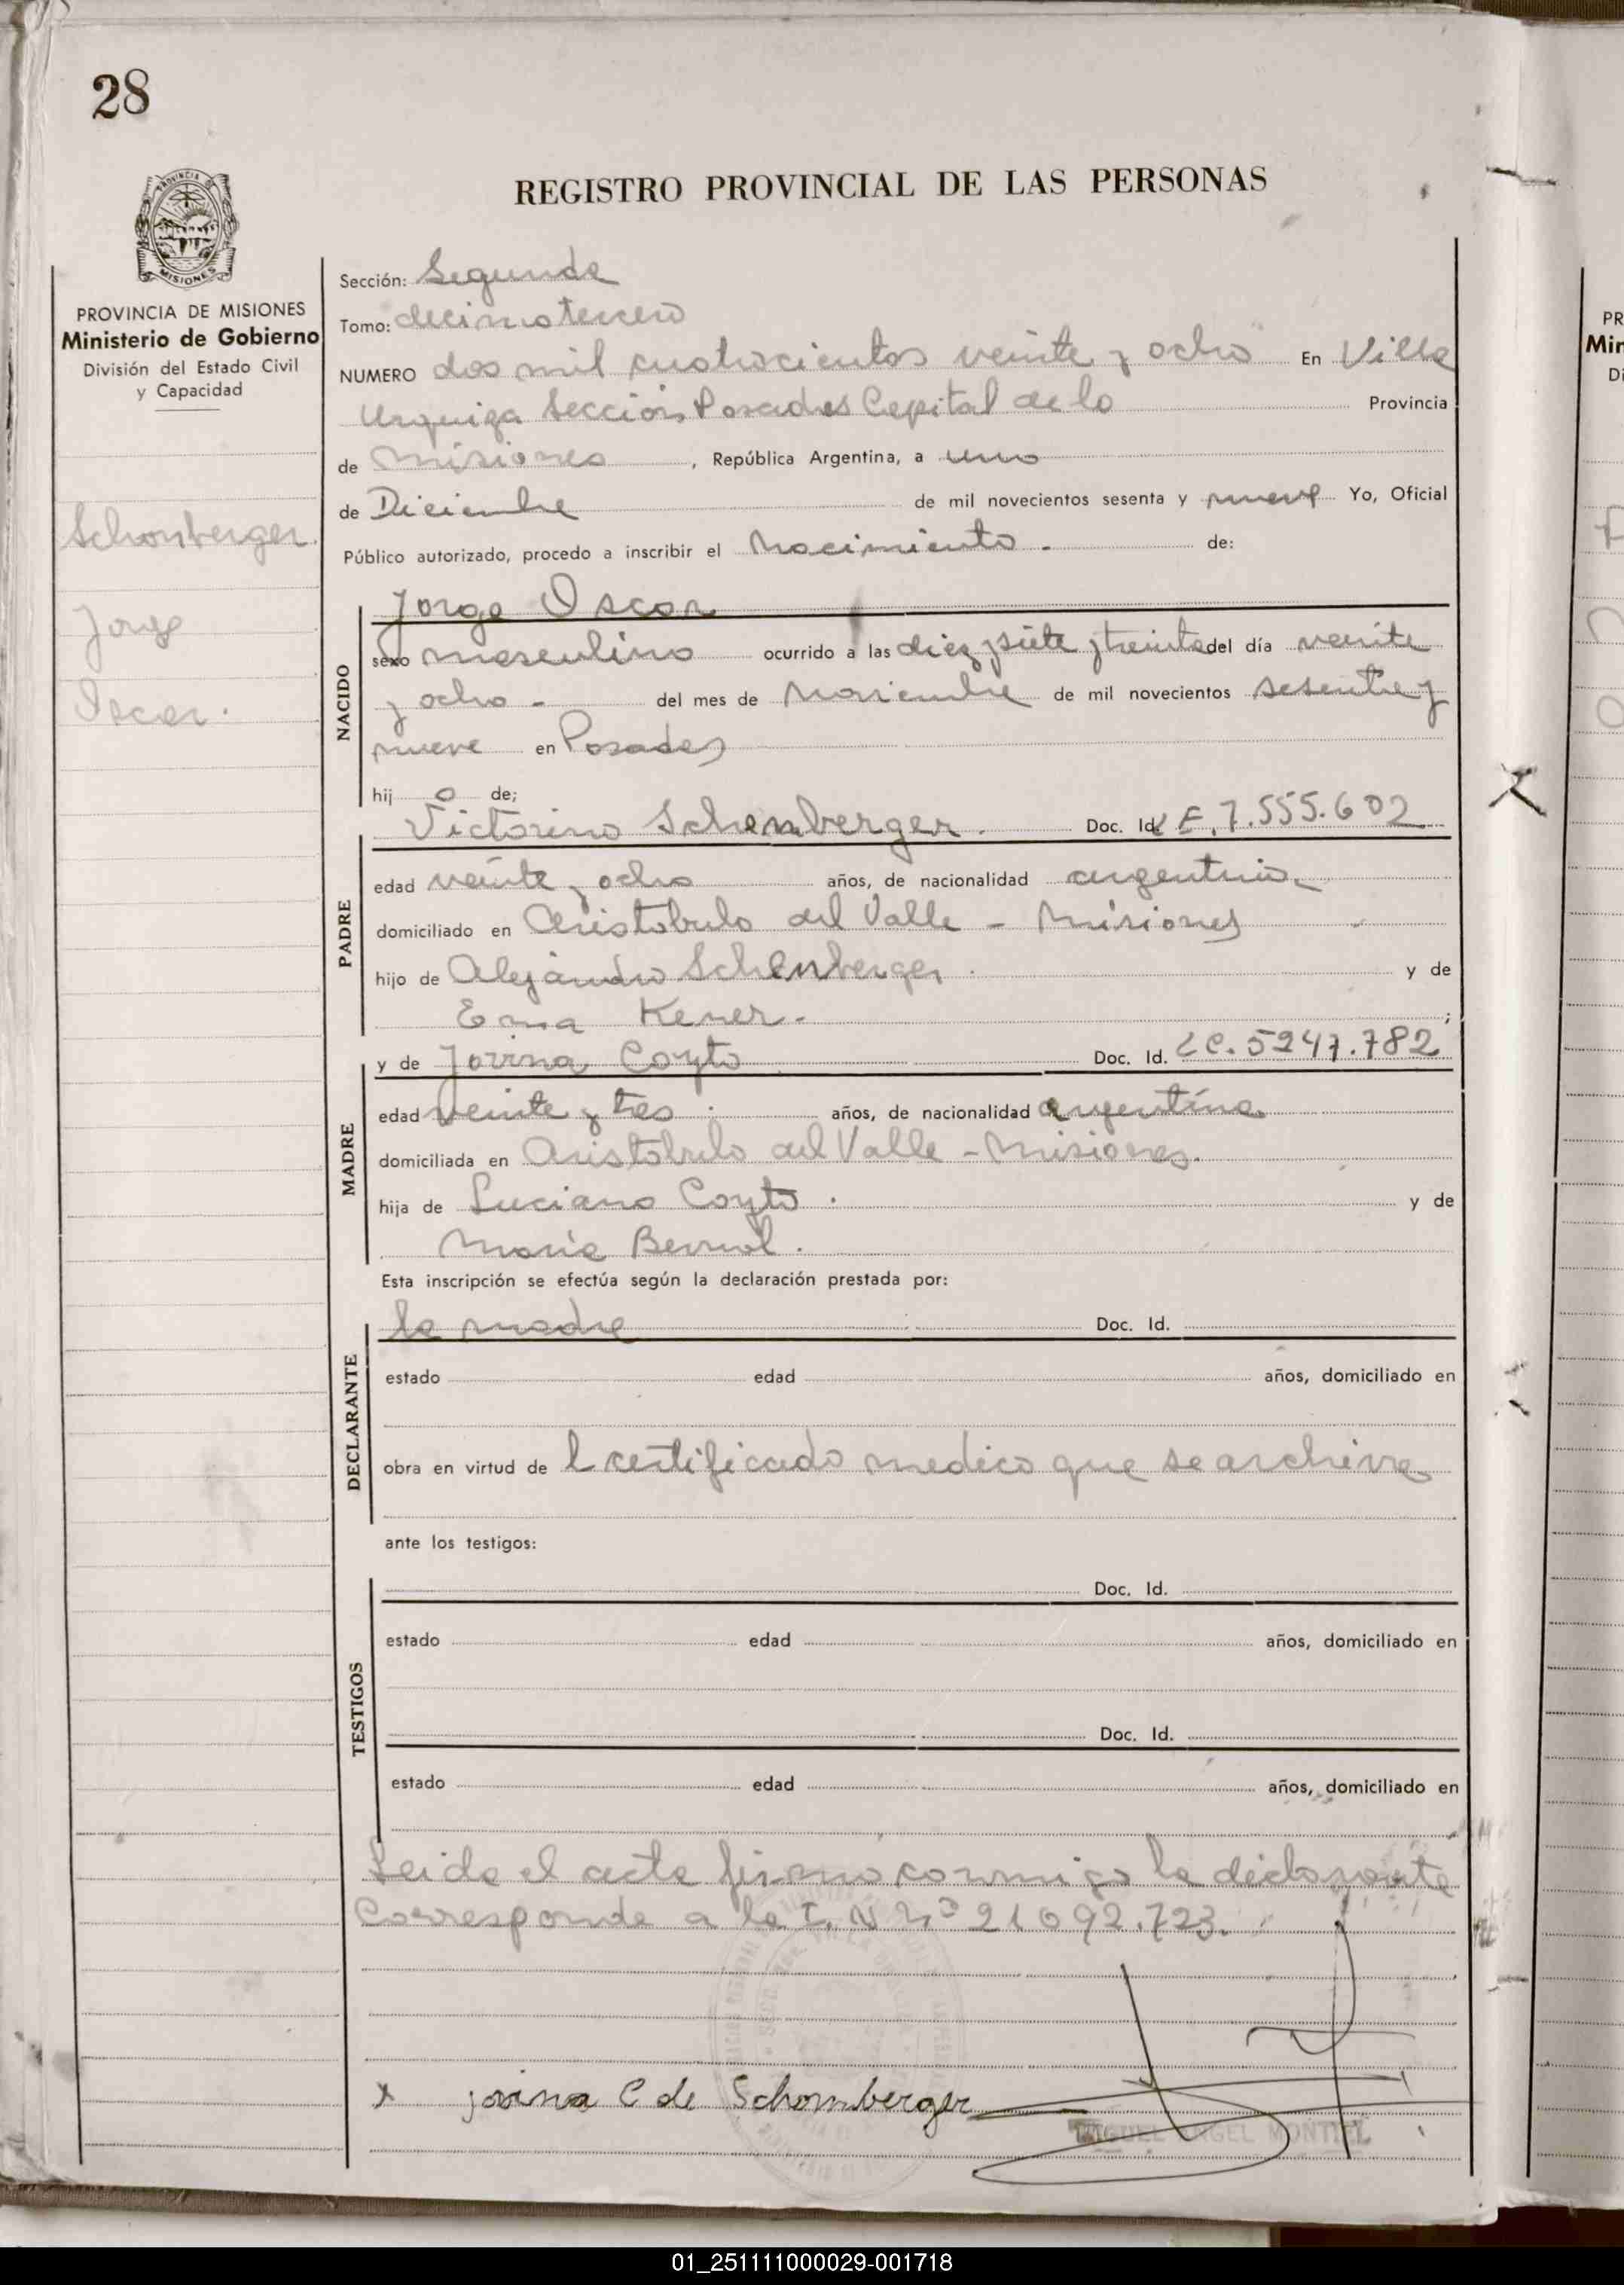 28
REGISTRO PROVINCIAL DE LAS PERSONAS
PROVINCIA DE MISIONES
Ministerio de Gobierno
División del Estado Civil
y Capacidad
Schonberger.
Jorge
Oscar.
Sección: Segunda
Tomo: decimotercero
NUMERO dos mil cuatrocientos veinte y ocho En Villa
Urquiza Sección Posadas Capital de la Provincia
de Misiones, República Argentina, a uno
de Diciembre de mil novecientos sesenta y nueve Yo, Oficial
Público autorizado, procedo a inscribir el Nacimiento. de:
Jorge Oscar
NACIDO
sexo masculino ocurrido a las diez y siete y treinta del día veinte
y ocho - del mes de Noviembre de mil novecientos sesenta y
nueve en Posadas
hij o de;
Victorino Schenberger. Doc. Id. LE. 7.555.602
PADRE
edad veinte y ocho años, de nacionalidad argentino.
domiciliado en Aristobulo del Valle - Misiones
hijo de Alejandro Schenberger. y de
Ema Kener.
y de Jovina Coyto Doc. Id. LC. 5247.782
MADRE
edad veinte y tres. años, de nacionalidad argentina
domiciliada en Aristobulo del Valle - Misiones.
hija de Luciano Coyto. y de
Maria Bernal.
Esta inscripción se efectúa según la declaración prestada por:
la madre Doc. Id.
DECLARANTE
estado edad años, domiciliado en
obra en virtud de l certificado medico que se archiva
ante los testigos:
Doc. Id.
TESTIGOS
estado edad años, domiciliado en
Doc. Id.
estado edad años, domiciliado en
Leida el acta firma conmigo la declarante
Corresponde a la I. N Nº 21 692.723.
x jovina C de Schomberger
MIGUEL ANGEL MONTIEL
PR
Min
Di
01_251111000029-001718